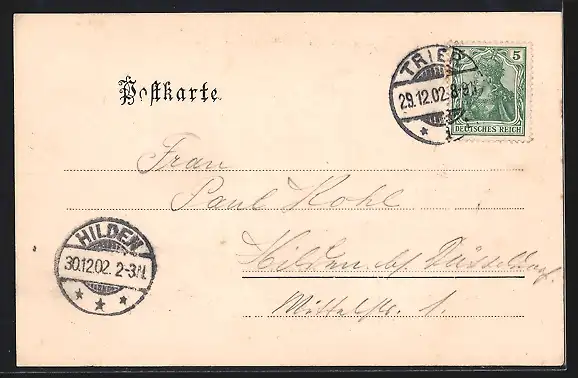 Postkarte.
TRIER
29.12.02.8-9
5
DEUTSCHES REICH
Frau
Paul Kohl
Hilden b/ Düsseldorf.
Mittelstr. 1.
HILDEN
30.12.02. 2-3N